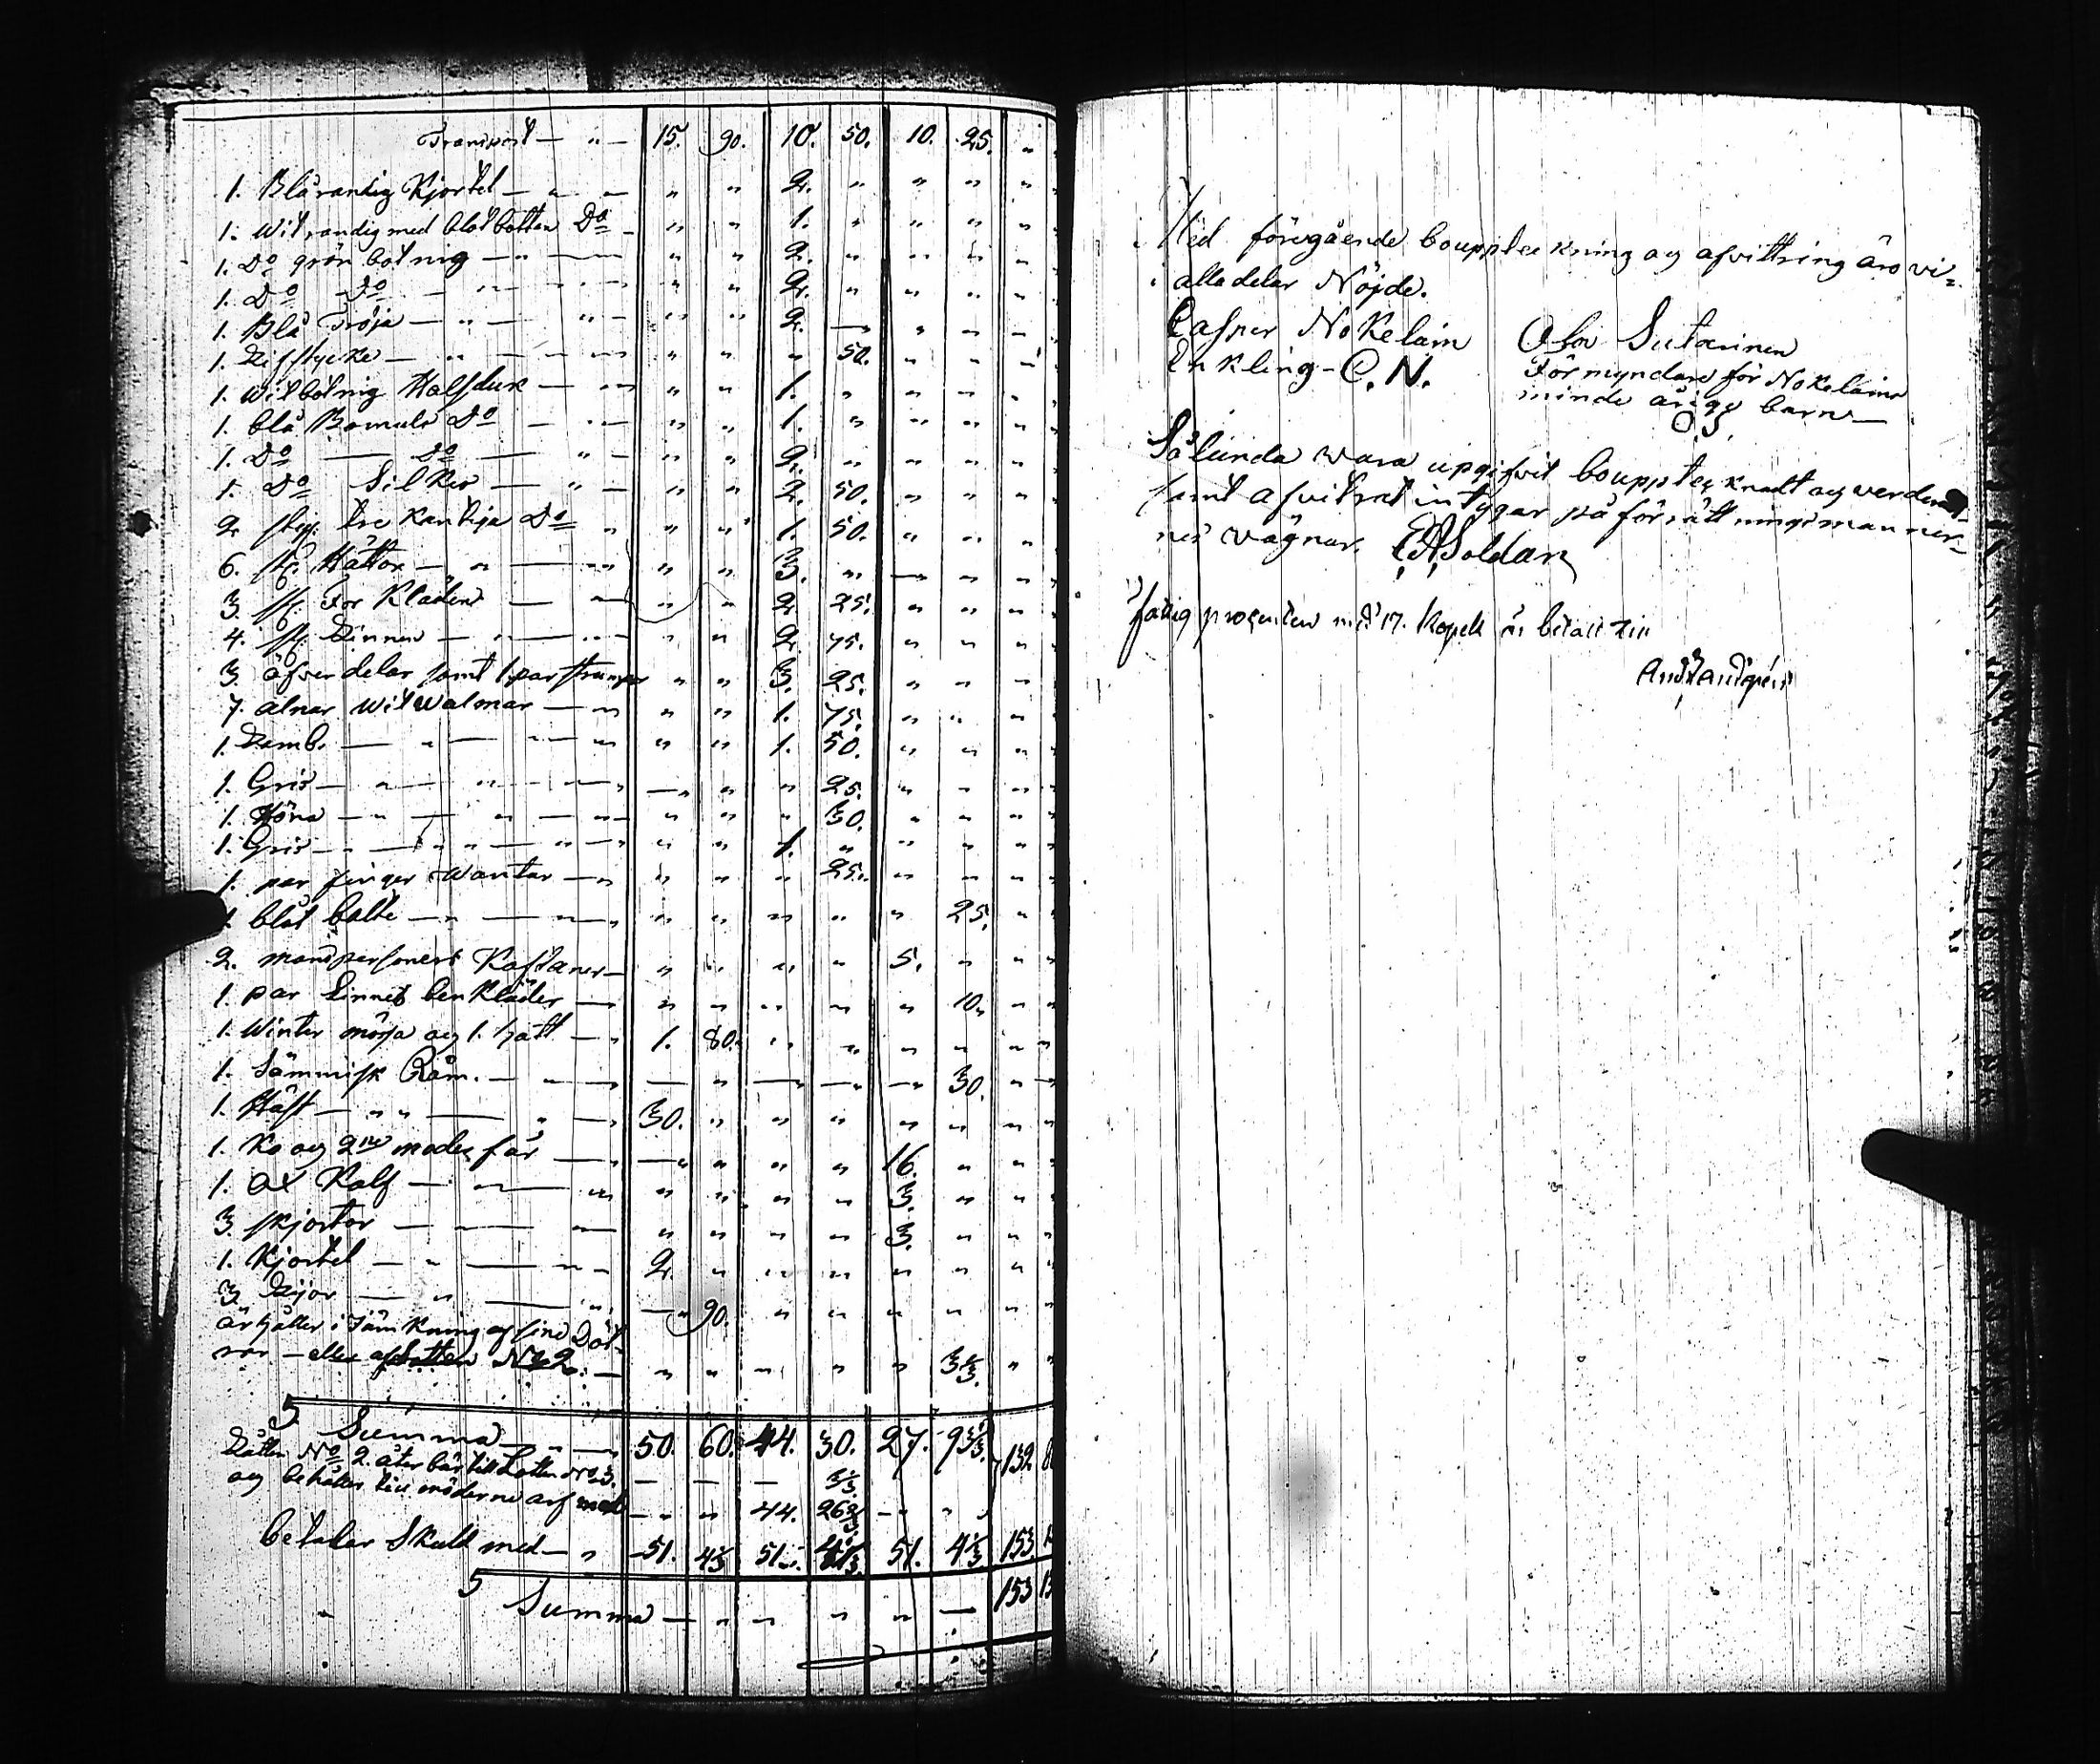 Transport — " — 15. 90. 10. 50. 10. 25. "
1. Blårandig Kjortel — " — " " 2. " " " "
1. Wit randig med blåt botten Do " " 1. " " " "
1. Do grön botnig — " — " " 2. " " " "
1. Do Do — " — " " 2. " " " "
1. Blå Tröja — " — " " 2. — " " "
1. Lifstycke — " — " " " 50. " " "
1. Witbotnig Halsduk — " " " 1. " " " "
1. blå Bomuls Do — " " " 1. " " " "
1. Do — Do — " " " 2. " " " "
1. Do Silkes — " — " " 2. 50. " " "
2. sty. tre kantija Do " " " 1. 50. " " "
6. st. Hättor — " — " " 3. " — " "
3. st. För Kläden — " " " 2. 25. " " "
4. st. Linnen — " — " " 2. 75. " " "
3. öfverdelar samt 1. par strumpor " " 3. 25. " " "
7. alnar wit walmar — " " " 1. 75. " " "
1. Lamb. — " — " " " 1. 50. " " "
1. Gris — " — " — " " 25. " " "
1. Höna — " — " — " " " 30. " " "
1. Gris — " — " — " " " 1. " " " "
1. par finger wantar — " " " " 25. " " "
1. blåt bälte — " — " " " " " " 25. "
2. manspersoners Kaftaner — " " " " 5. " "
1. par Linnes benkläder — " " " " " 10. "
1. Winter mössa og 1. hatt — " 1. 80. " " " " "
1. Sämmisk Räm. — " — — " — — — 30. "
1. Häst — " " — " — 30. " " " " " "
1. Ko og 2ne moder får — — " " " 16. " "
1. ox Kalf — " — " " " " " 3. " "
3. skjortor — " — " " " " 3. " "
1. Kjortel — " — " " 2. " " " " " "
3. Löjor — " — " — 90. " " " " "
ärhåller i Jämkning af sine Döt-
rar — eller af Lotten No 2. — " " " " " 3 1/3. "
S Summa — " — 50. 60. 44. 30. 27. 93 1/3. 132. 8
Lotten No 2. åter bär till Lotten No 3. — — — 3 1/3.
og behåller till möderne arf med — " " 44. 26 2/3. — " "
betalar Skuld med — " 51. 4 1/3 51. 4 1/3. 51. 4 1/3 153. 1
S Summa — " " " " — 153 13

Med föregående boupptekning og afvittring äro vi
i alla delar Nöjde.
Casper Nokelain
Enkling — C. N.
Olov Sutarinen
Förmyndare för Nokelains
minde åriga barn —
Sålunda vara upgifvit bouppteknadt og verderat
samt afvitrat intygar på förrättningsmanner-
nes vägnar. E. A. Soldan
fattig procenten med 17. kopek är betalt till